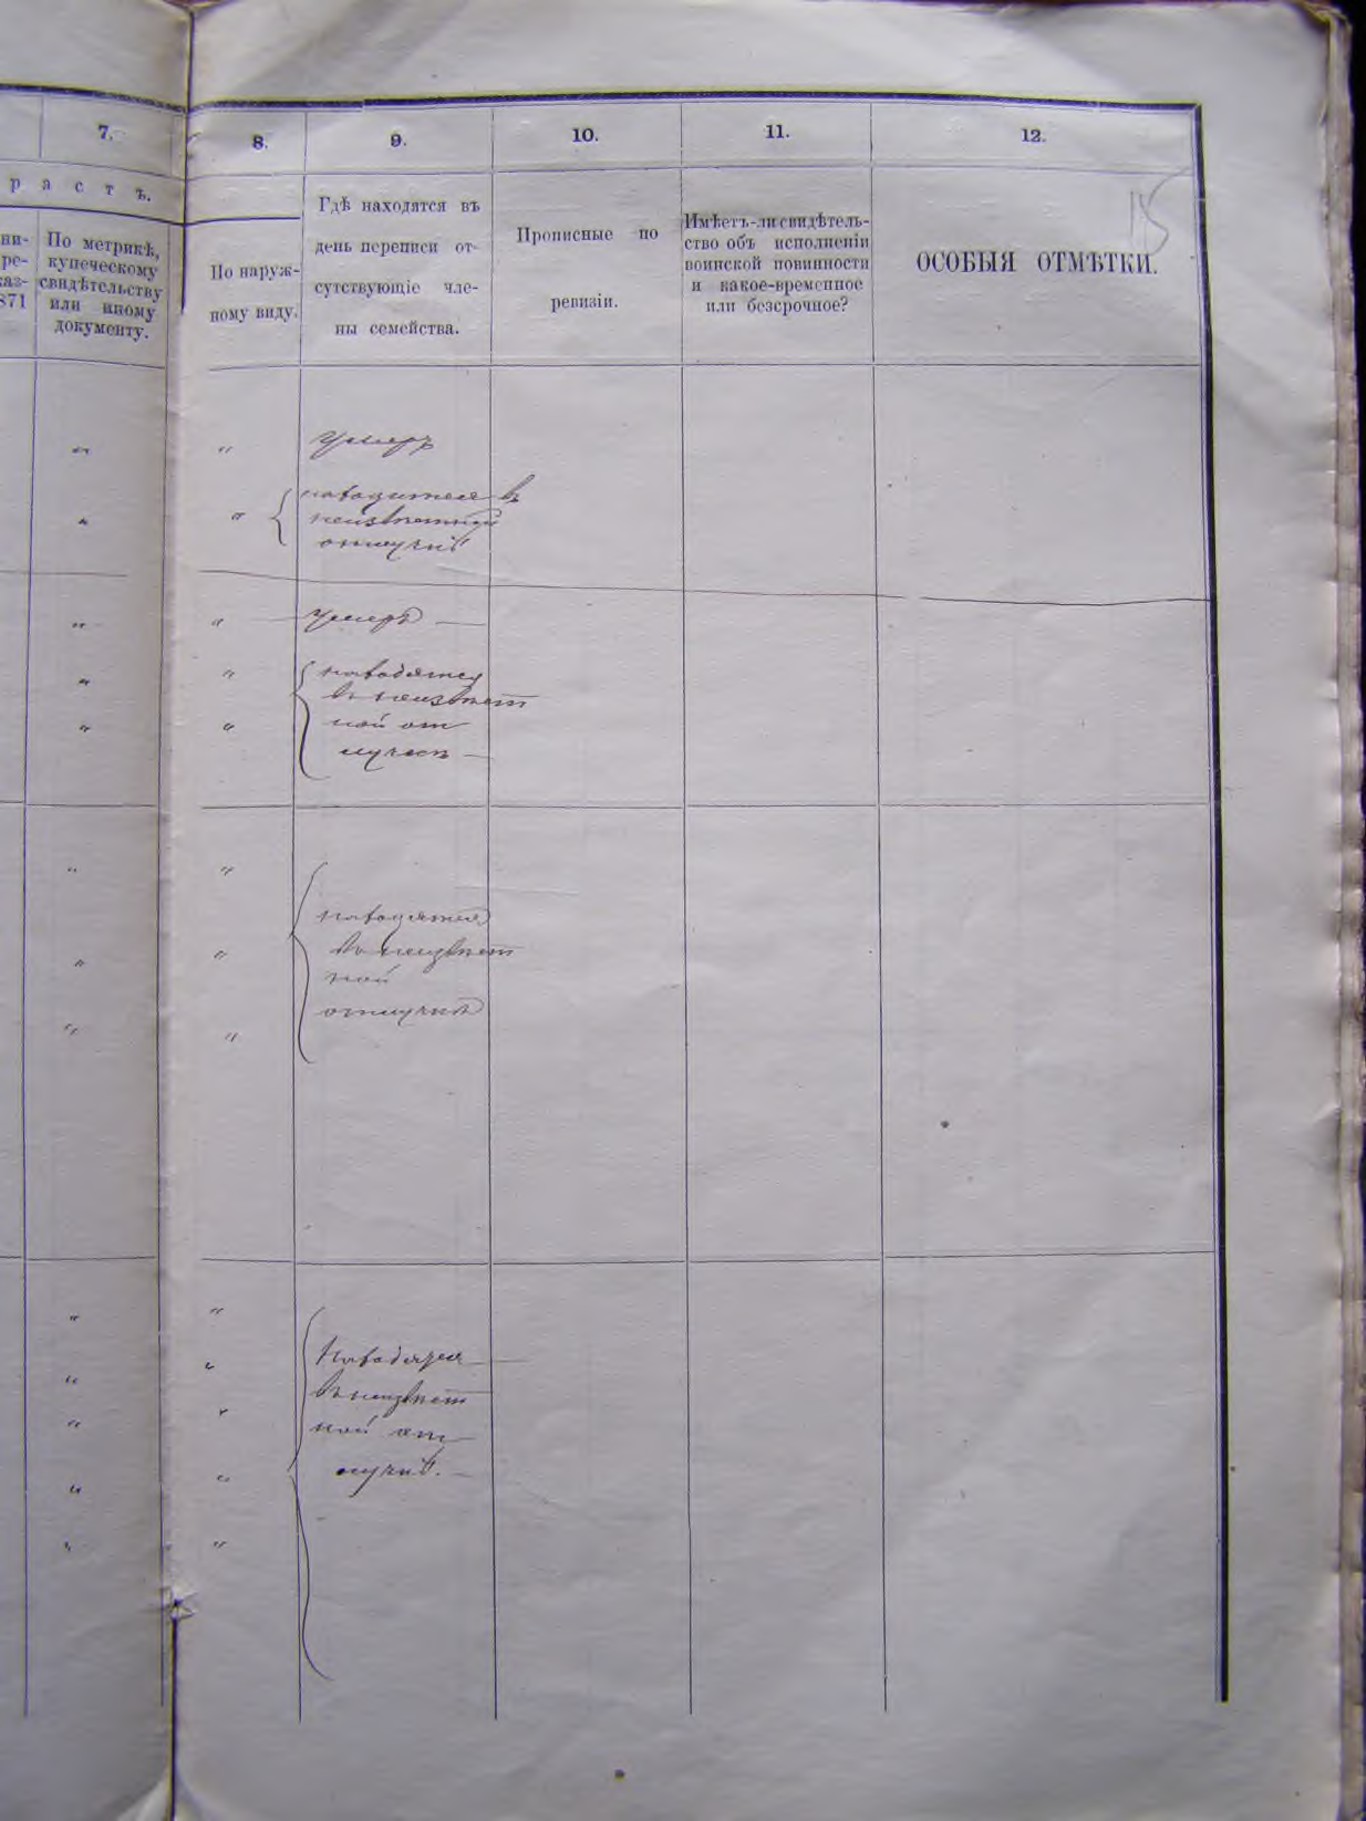 7.
8.
9.
10.
11.
12.
растъ.
ни-
ре-
каз-
871
По метрикѣ,
купеческому
свидѣтельству
или иному
документу.
По наруж-
ному виду.
Гдѣ находятся въ
день переписи от-
сутствующіе чле-
ны семейства.
Прописные по
ревизіи.
Имѣетъ-ли свидѣтель-
ство объ исполненіи
воинской повинности
и какое-временное
или безсрочное?
ОСОБЫЯ ОТМѢТКИ.
15
" " умеръ
" " находится въ
неизвѣстной
отлучкѣ
" " умеръ
" " находятся
въ неизвѣст
" " ной от
лучкѣ
" "
находятся
" " въ неизвѣст
ной
отлучкѣ
" "
" "
" " находятся
въ неизвѣст
" " ной от
" " лучкѣ.
" "